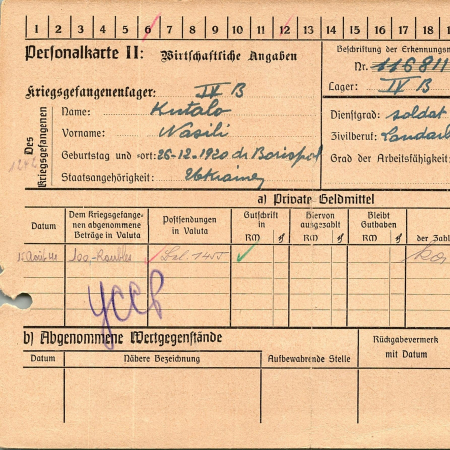 1 2 3 4 5 6 7 8 9 10 11 12 13 14 15 16 17 18
Personalkarte II: Wirtschaftliche Angaben
Beschriftung der Erkennungsm
Nr. 116811
Lager: IV B
Kriegsgefangenenlager: IV B
Des Kriegsgefangenen
Name: Kutalo
Vorname: Wasili
Geburtstag und -ort: 26-12-1920 Borispol
Staatsangehörigkeit: Ukrainer
Dienstgrad: soldat
Zivilberuf: Landarb
Grad der Arbeitsfähigkeit:
a) Private Geldmittel
Datum
Dem Kriegsgefange-
nen abgenommene
Beträge in Valuta
Postsendungen
in Valuta
Gutschrift
in
RM ₰
Hiervon
ausgezahlt
RM ₰
Bleibt
Guthaben
RM ₰
der Zahl
100
УССР
b) Abgenommene Wertgegenstände
Rückgabevermerk
mit Datum
Datum Nähere Bezeichnung Aufbewahrende Stelle